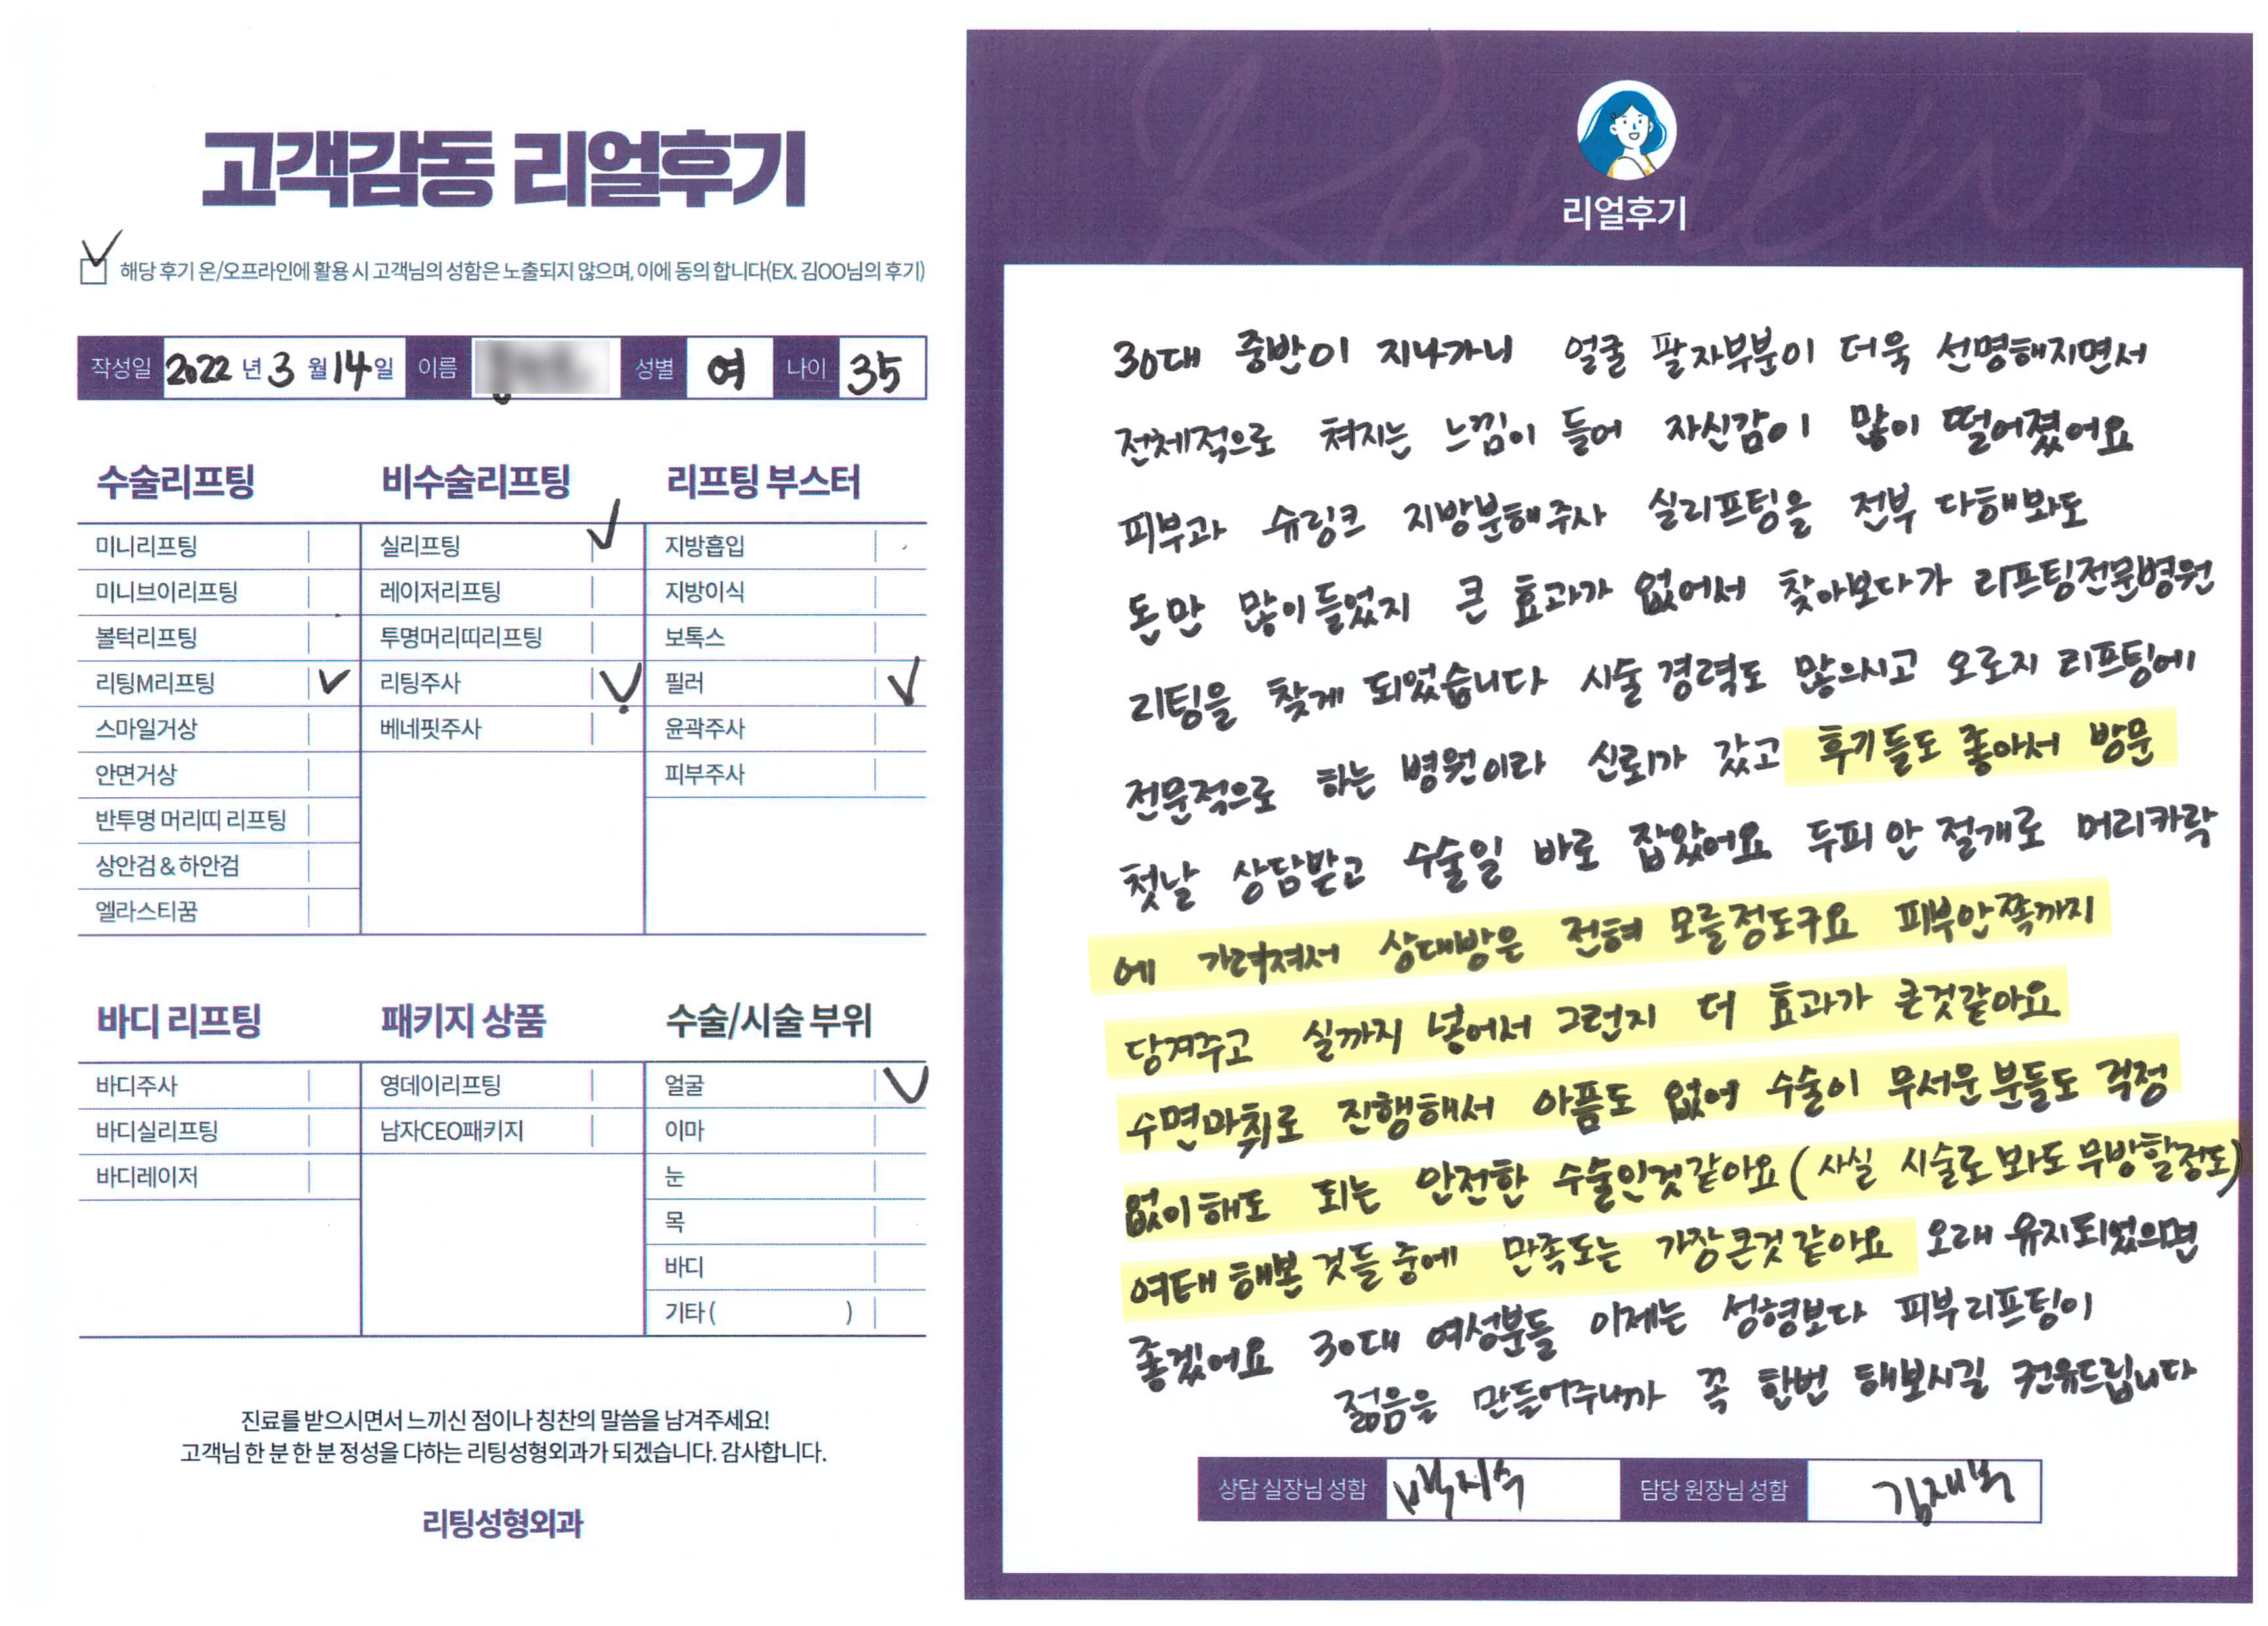 고객감동 리얼후기
해당 후기 온/오프라인에 활용 시 고객님의 성함은 노출되지 않으며, 이에 동의 합니다(EX. 김OO님의 후기)
작성일 2022 년 3 월 14 일 이름 성별 여 나이 35
수술리프팅
미니리프팅
미니브이리프팅
볼턱리프팅
리팅M리프팅
스마일거상
안면거상
반투명 머리띠 리프팅
상안검 & 하안검
엘라스티꿈
비수술리프팅
실리프팅
레이저리프팅
투명머리띠리프팅
리팅주사
베네핏주사
리프팅 부스터
지방흡입
지방이식
보톡스
필러
윤곽주사
피부주사
바디 리프팅
바디주사
바디실리프팅
바디레이저
패키지 상품
영데이리프팅
남자CEO패키지
수술/시술 부위
얼굴
이마
눈
목
바디
기타 ( )
진료를 받으시면서 느끼신 점이나 칭찬의 말씀을 남겨주세요!
고객님 한 분 한 분 정성을 다하는 리팅성형외과가 되겠습니다. 감사합니다.
리팅성형외과
Review
리얼후기
30대 중반이 지나가니 얼굴 팔자부분이 더욱 선명해지면서
전체적으로 쳐지는 느낌이 들어 자신감이 많이 떨어졌어요
피부과 슈링크 지방분해주사 실리프팅을 전부 다해봐도
돈만 많이들었지 큰 효과가 없어서 찾아보다가 리프팅전문병원
리팅을 찾게 되었습니다 시술경력도 많으시고 오로지 리프팅에
전문적으로 하는 병원이라 신뢰가 갔고 후기들도 좋아서 방문
첫날 상담받고 수술일 바로 잡았어요 두피 안 절개로 머리카락
에 가려져서 상대방은 전혀 모를정도구요 피부안쪽까지
당겨주고 실까지 넣어서 그런지 더 효과가 큰것같아요
수면마취로 진행해서 아픔도 없어 수술이 무서운분들도 걱정
없이해도 되는 안전한 수술인것같아요 (사실 시술로 봐도 무방할정도)
여태 해본 것들 중에 만족도는 가장큰것 같아요 오래 유지되었으면
좋겠어요 30대 여성분들 이제는 성형보다 피부리프팅이
젊음을 만들어주니까 꼭 한번 해보시길 권유드립니다
상담 실장님 성함 백지수 담당 원장님 성함